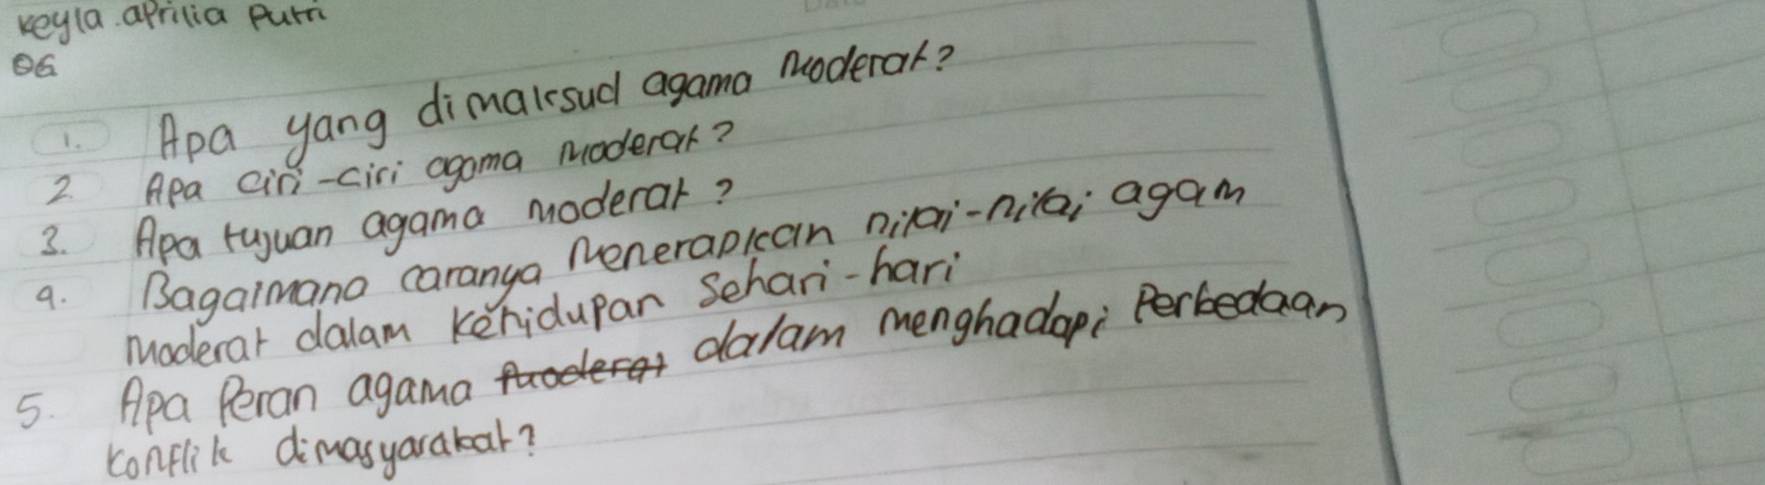 Keyla aprilia Putri
06
1. Apa yang dimaksud agama Moderat?
2. Apa ciri-ciri agama Moderat?
3. Apa tujuan agama moderat?
4. Bagaimana caranya Menerapkan nilai-nilai agam
Moderat dalam kehidupan sehari-hari
5. Apa Peran agama moderat dalam menghadapi Perbedaan
konflik dimasyarakat?